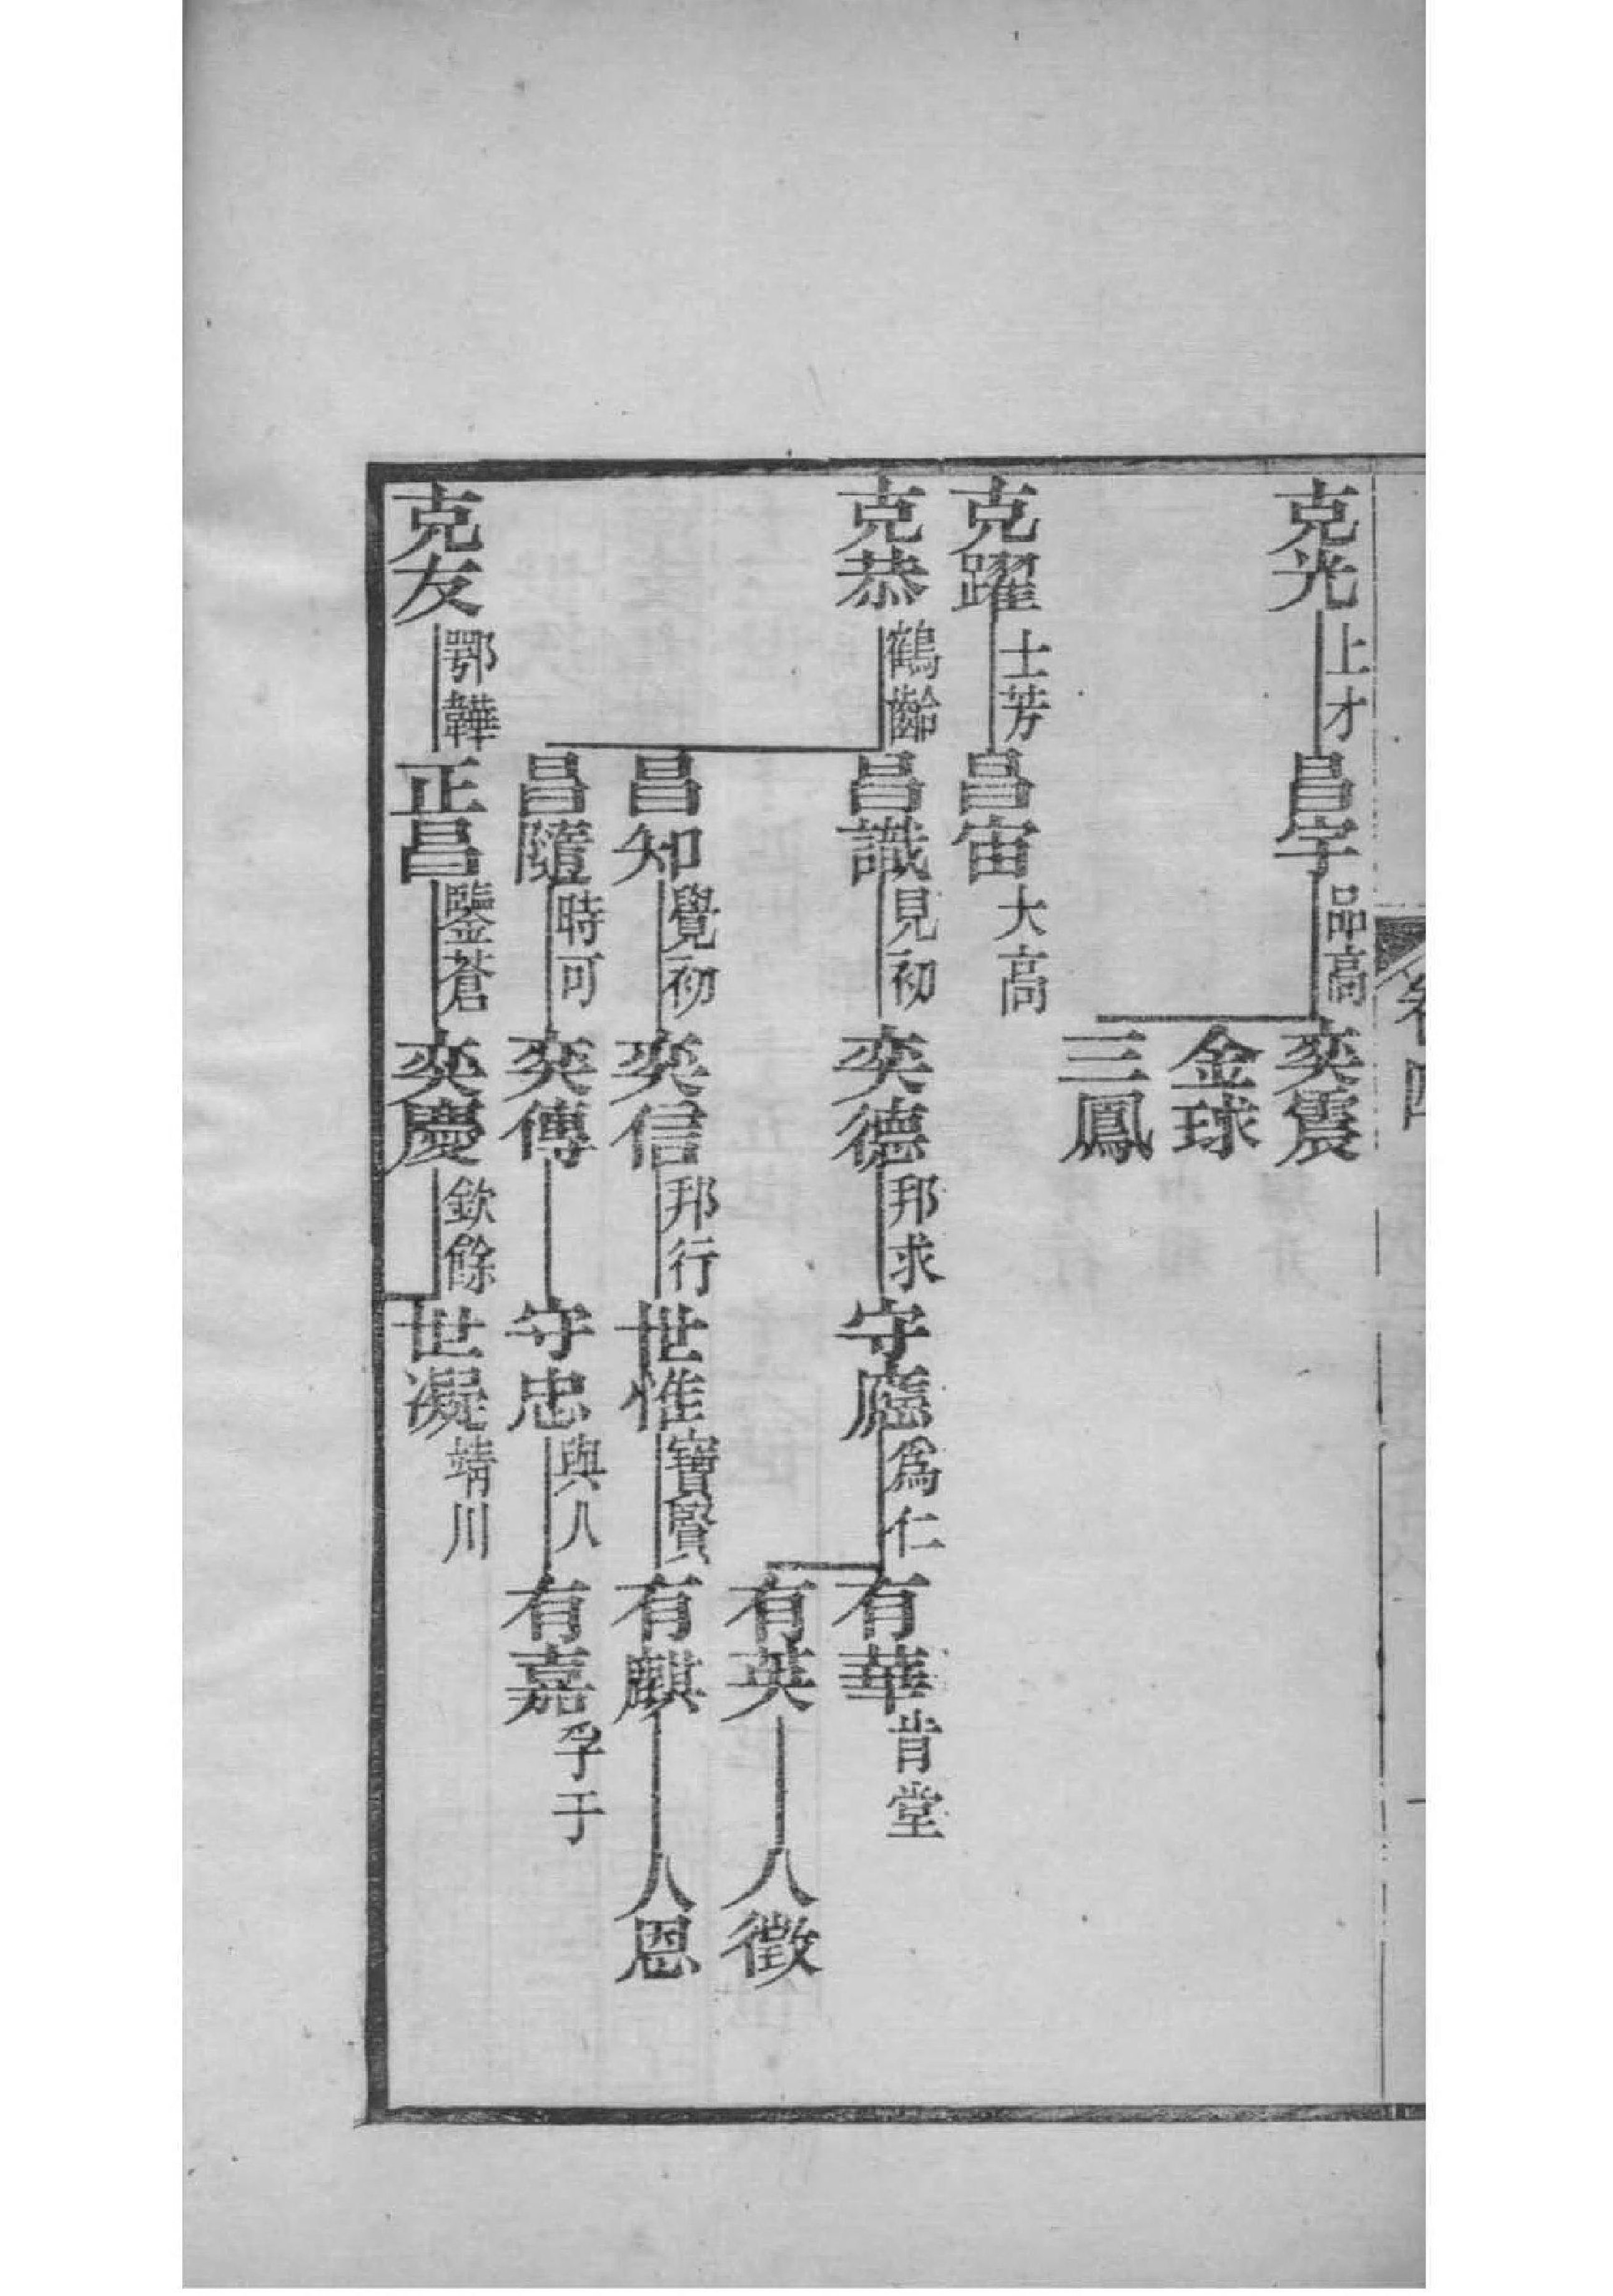 卷四
克光 上才 昌宇 品高 奕震
金球
三鳳
克躍 士芳 昌宙 大高
克恭 鶴齡 昌識 見初 奕德 邦求 守應 爲仁 有華 肯堂
有英 人徵
昌知 覺初 奕信 邦行 世惟 寶賢 有麒 人恩
昌隨 時可 奕傅 守忠 與人 有嘉 孚于
克友 鄂韡 正昌 鑒蒼 奕慶 欽餘 世凝 靖川